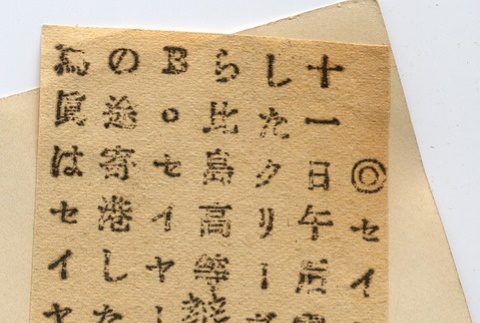 ◎セイ
十一日午后
したクリー
ら比島高等辨
B。セイヤー
の途寄港した
寫眞はセイヤ